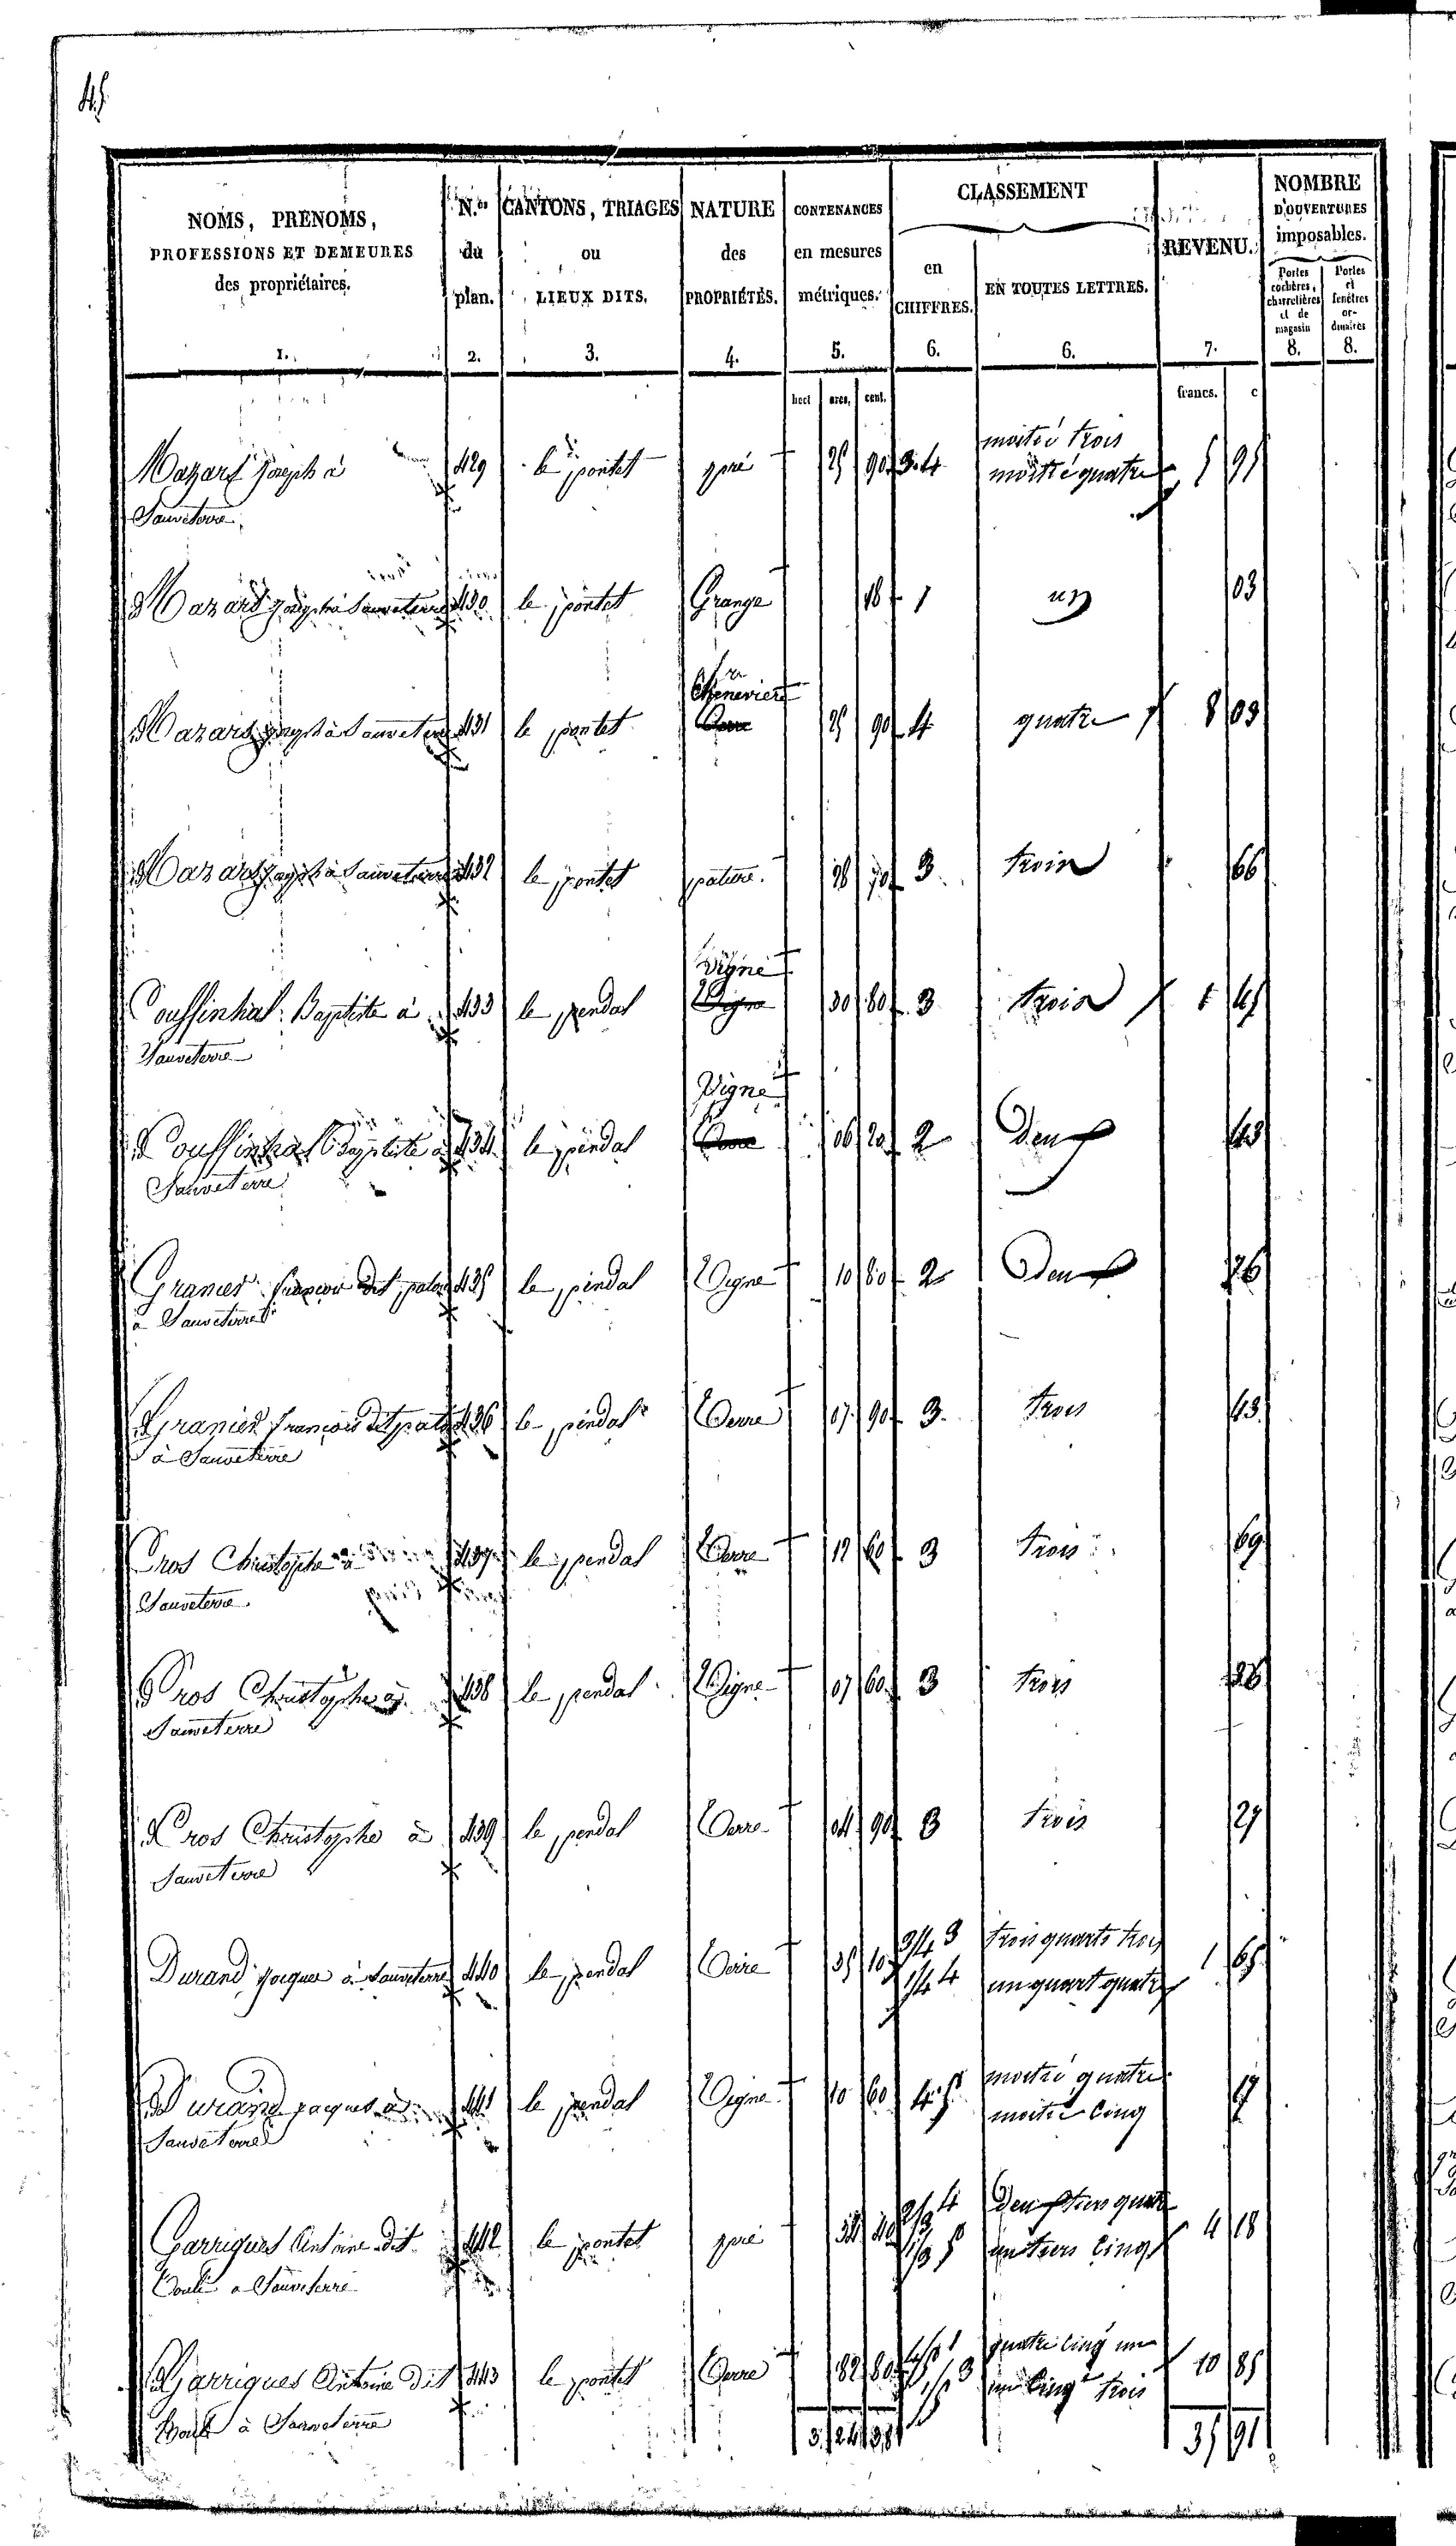 45
NOMS, PRÉNOMS,
PROFESSIONS ET DEMEURES
des propriétaires.
1.
N.os
du
plan.
2.
CANTONS, TRIAGES
ou
LIEUX DITS.
3.
NATURE
des
PROPRIÉTÉS.
4.
CONTENANCES
en mesures
métriques.
5.
CLASSEMENT
en
CHIFFRES.
6.
EN TOUTES LETTRES.
6.
REVENU.
7.
NOMBRE
D'OUVERTURES
imposables.
Portes cochères, charretières et de magasin
8.
Portes et fenêtres ordinaires
8.
hect ares. cent. francs. c
moitié trois
Mazars Joseph à 429 le pontet pré 25 90 3.4 moitié quatre 5 95
Sauveterre
Mazars Joseph à Sauveterre 430 le pontet Grange 18 1 un 03
Cheneviere
Mazars Joseph à Sauveterre 431 le pontet Terre 25 90 4 quatre 8 03
Mazars Joseph à Sauveterre 432 le pontet pature 28 70 3 trois 66
Vigne
Couffinhal Baptiste à 433 le pendal Vigne 30 80 3 trois 1 45
Sauveterre
Vigne
Couffinhal Baptiste à 434 le pendal Terre 06 20 2 Deux 43
Sauveterre
Granier françois dit 435 le pendal Vigne 10 80 2 Deux 76
à Sauveterre
Granier françois dit 436 le pendal Terre 07 90 3 trois 43
à Sauveterre
Cros Christophe à 437 le pendal Terre 12 60 3 trois 69
Sauveterre
Cros Christophe à 438 le pendal Vigne 07 60 3 trois 36
Sauveterre
Cros Christophe à 439 le pendal Terre 04 90 3 trois 27
Sauveterre
3/4 3 trois quarts trois
Durand Jacques à Sauveterre 440 le pendal Terre 35 10 1/4 4 un quart quatre 1 65
moitié quatre
Durand Jacques à 441 le pendal Vigne 10 60 4.5 moitié cinq 17
Sauveterre
2/3 4 Deux tiers quatre
Garrigues Antoine dit 442 le pontet pré 34 40 1/3 5 un tiers cinq 4 18
à Sauveterre
4/5 1 quatre cinq un
Garrigues Antoine dit 443 le pontet Terre 82 80 1/5 3 un cinq trois 10 85
à Sauveterre
3 24 38 35 91